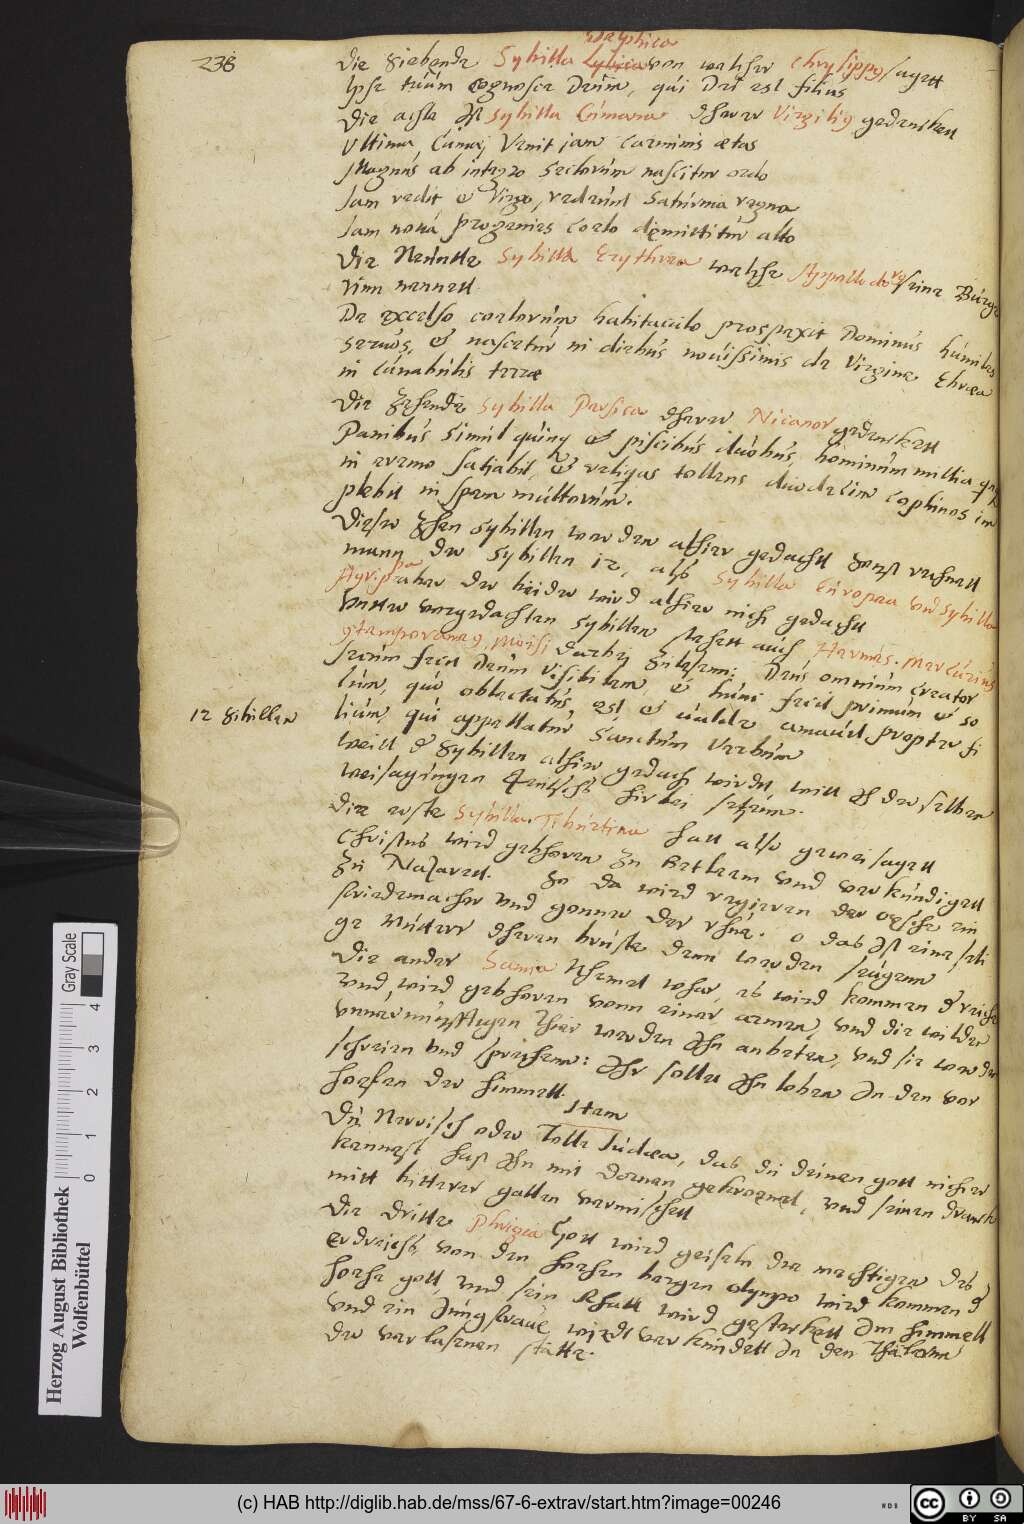 238
Delphica
Die Siebende Sybilla Lybica von welcher Chrysippo, sagett
Ipse tuum cognosce Deum, qui Dei est filius
Die achte Ist Sybilla Cumana dherer Virgilio gedencken
Ultima Cumaj Venit jam carminis ætas
Magnus ab integro Seclorum nascitur ordo
Jam redit et Virgo, redeunt Saturnia regna
Jam nova progenies coelo demittitur alto
Die Neunte Sybilla Erythrea welche Appollodorus seine Burge
rinn nennett
De excelso coelorum habitaculo prospexit Dominus humiles
Servos, et nascetur in diebus novissimis de Virgine Ebræa
in Cunabulis terræ
Die Zehende Sybilla Persica dherer Nicanor gedencket
Panibus simul quinq et piscibus duobus, hominum millia
in eremo satiabit, et reliquas tollens duodecim cophinos im
plebit in spem multorum.
Diese Zhen Sybillen werden alhier gedacht sonst rechnett
mann der Sybillen 12, als Sybilla Europea und Sybilla
Agrippa aber der beider wird alhier nich gedacht
Unter vorgedachten Sybillen stehett auch Hermes. Mercurius
contemporaneus Moisi darbej zu lesenn: Deus omnium creator
secum fecit Deum visibilem, et hunc fecit primum et so
lum, quo oblectatus est et valde amavit propter fi
12 Sibillen
lium, qui appellatur Sanctum Verbum
Weill d Sybillen alhier gedach wirdt, will Ich derselben
weisagungen Teutsch hirbei setzenn.
Die erste Sybilla. Tiburtina hatt also geweisagett
Christus wird gebhoren zu Betleem und verkundigett
zu Nazarett. So da wird regieren der ochse ein
friedemacher und gonner der rhue. o das Ist eine seli
ge Mutter dheren bruste denn werden seugenn
Die ander Samia Nhemet whar, es wird kommen d reiche
und wird gebhoren vonn einer armen, und die wilden
unvernunfftigen Thier werden Ihn anbeten, und sie werden
schreien und sprechenn: Ihr sollet Ihn loben In den vor
hoefen der himmell.
Item
Du Nerrisch oder Tolle Judæa, das du deinen gott nicht
kennest hast Ihn mit dornen gekroenet, und seinen dranck
mitt bitterer gallen vermischett
Die dritte Phrigia Gott wird geiseln die mechtigen des
erdreichs von den hoehen bergen olympo wird kommen d
hoehe gott und sein Rhatt wird gesterkett Im himmell
und ein Jungfraue wirdt verkundett In den thälernn
der verlasenen stätte.
Herzog August Bibliothek
Wolfenbüttel
0 1 2 3 4
Gray Scale
(c) HAB http://diglib.hab.de/mss/67-6-extrav/start.htm?image=00246
WDB
CC BY SA